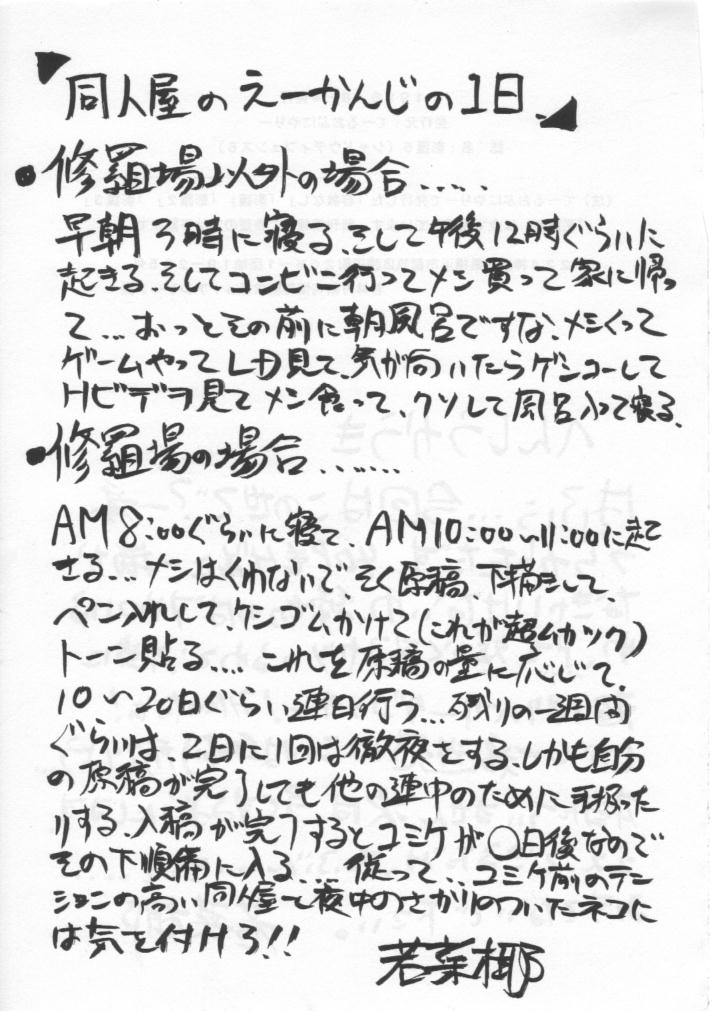 同人屋のえーかんじの1日
●修羅場以外の場合.....
早朝3時に寝る、そして午後12時ぐらいに
起きる、そしてコンビニ行ってメシ買って家に帰っ
て...おっとその前に朝風呂ですな、メシくって
ゲームやってLD見て、気が向いたらゲンコーして
Hビデヲ見てメシ食って、クソして風呂入って寝る、
●修羅場の場合......
AM8:00ぐらいに寝て、AM10:00〜11:00に起
きる...メシはくわないでそく原稿、下描きして、
ペン入れして、ケシゴムかけて(これが超ムカツク)
トーン貼る.... これを原稿の量に応じて、
10〜20日ぐらい連日行う...残りの一週間
ぐらいは、2日に1回は徹夜をする、しかも自分
の原稿が完了しても他の連中のために手扱った
りする、入稿が完了するとコミケが○日後なので
その下準備に入る.... 従って...コミケ前のテン
ションの高い同人屋と夜中のさかりのついたネコに
は気を付けろ!!
若菜椰